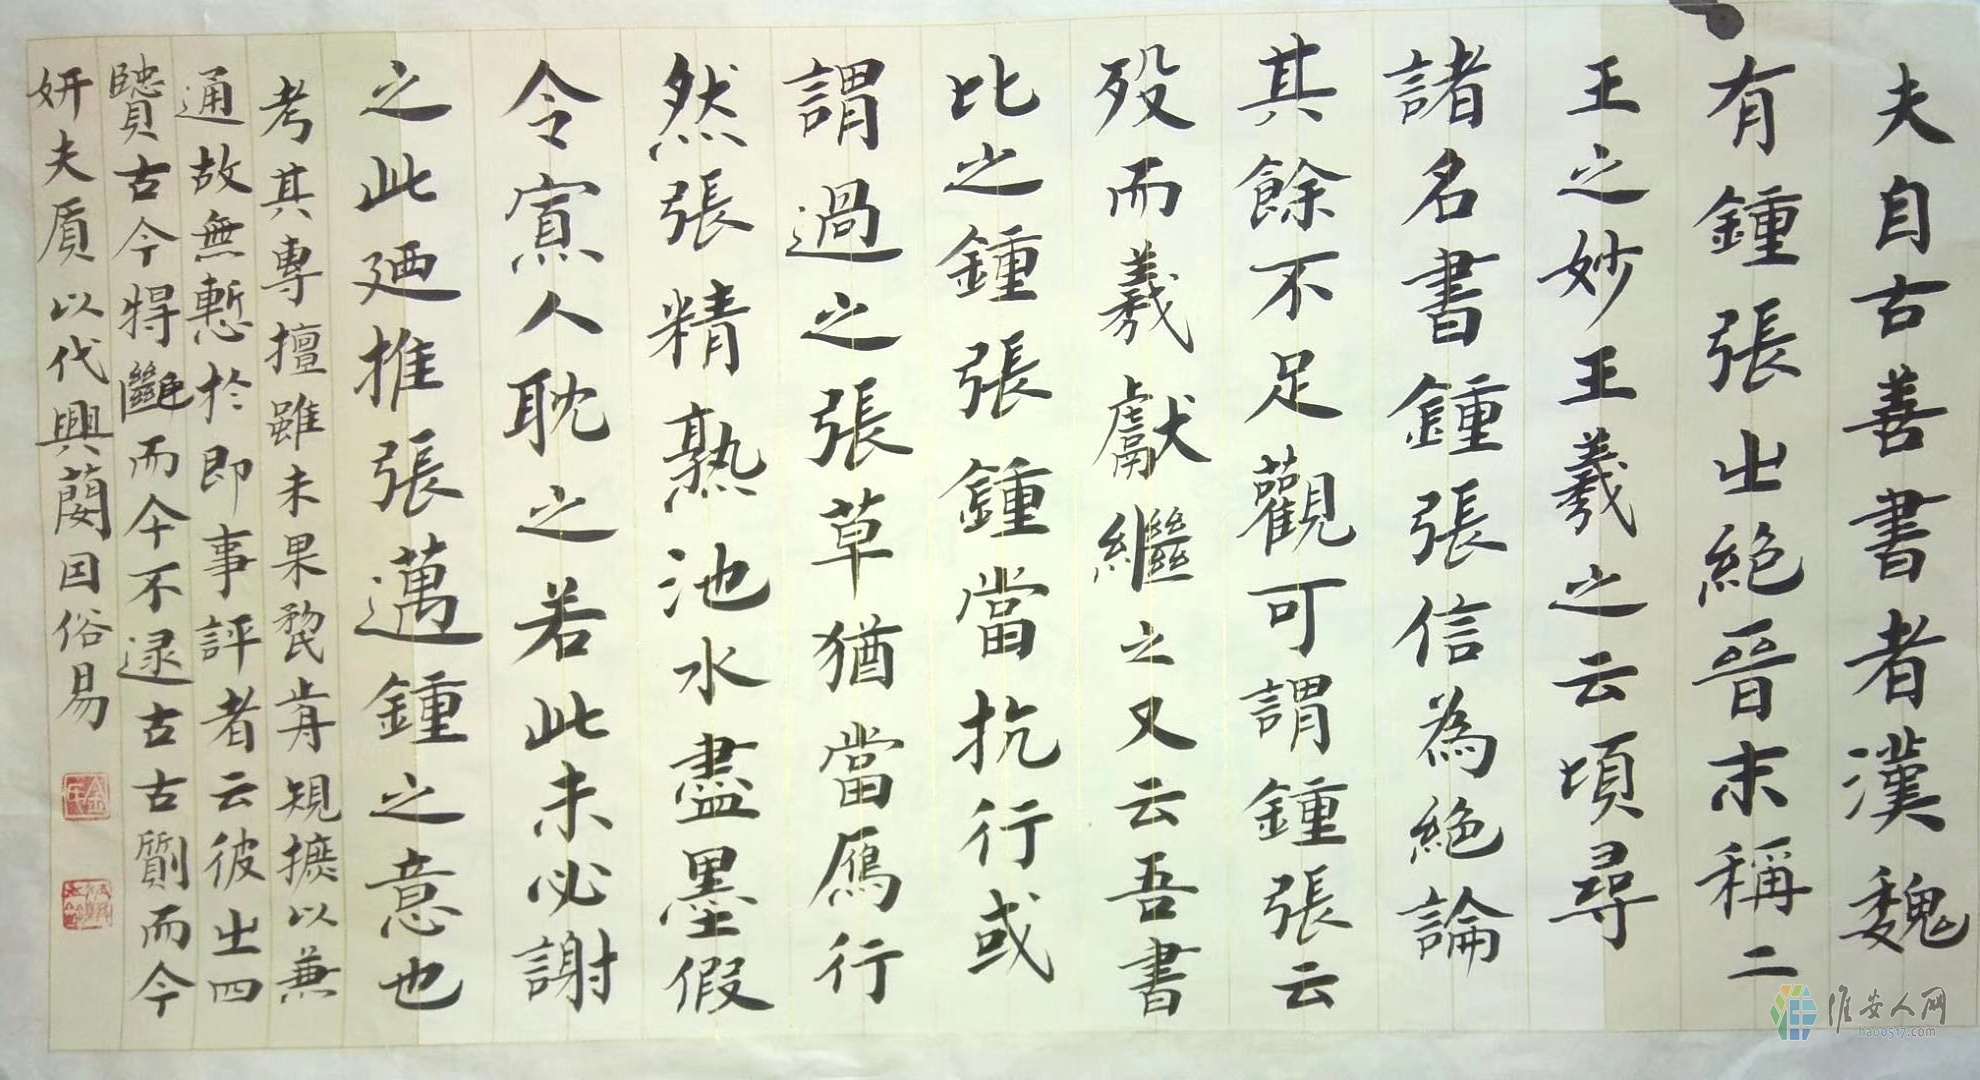 夫自古善書者漢魏
有鍾張出絕晉末稱二
王之妙王羲之云頃尋
諸名書鍾張信為絕論
其餘不足觀可謂鍾張云
歿而羲獻繼之又云吾書
比之鍾張鍾當抗行或
謂過之張草猶當鴈行
然張精熟池水盡墨假
令寡人耽之若此未必謝
之此廼推張邁鍾之意也
考其專擅雖未果於前規摭以兼
通故無慙於即事評者云彼出四
賢古今特絕而今不逮古古質而今
妍夫質以代興妍因俗易
淮安人网
hao0517.com